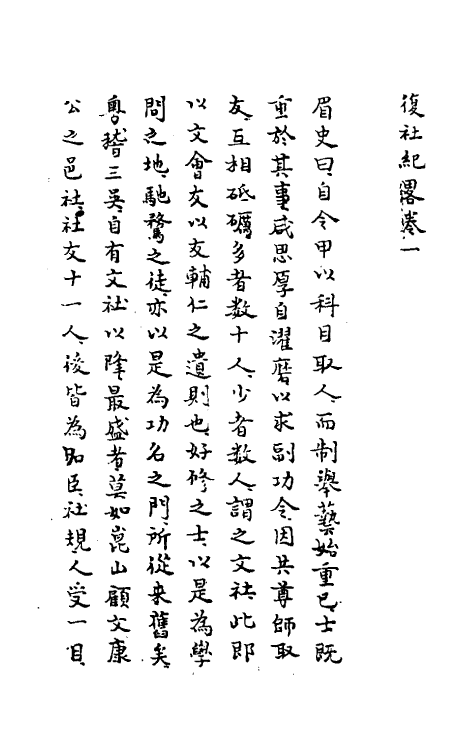 復社紀略卷一
眉史曰自令甲以科目取人而制舉藝始重已士既
重於其事咸思厚自濯磨以求副功令因共尊師取
友互相砥礪多者數十人少者數人謂之文社此即
以文會友以友輔仁之遺則也好修之士以是為學
問之地馳騖之徒亦以是為功名之門所從来舊矣
粵稽三吳自有文社以降最盛者莫如崑山顧文康
公之邑社社友十一人後皆為名臣社規人受一目